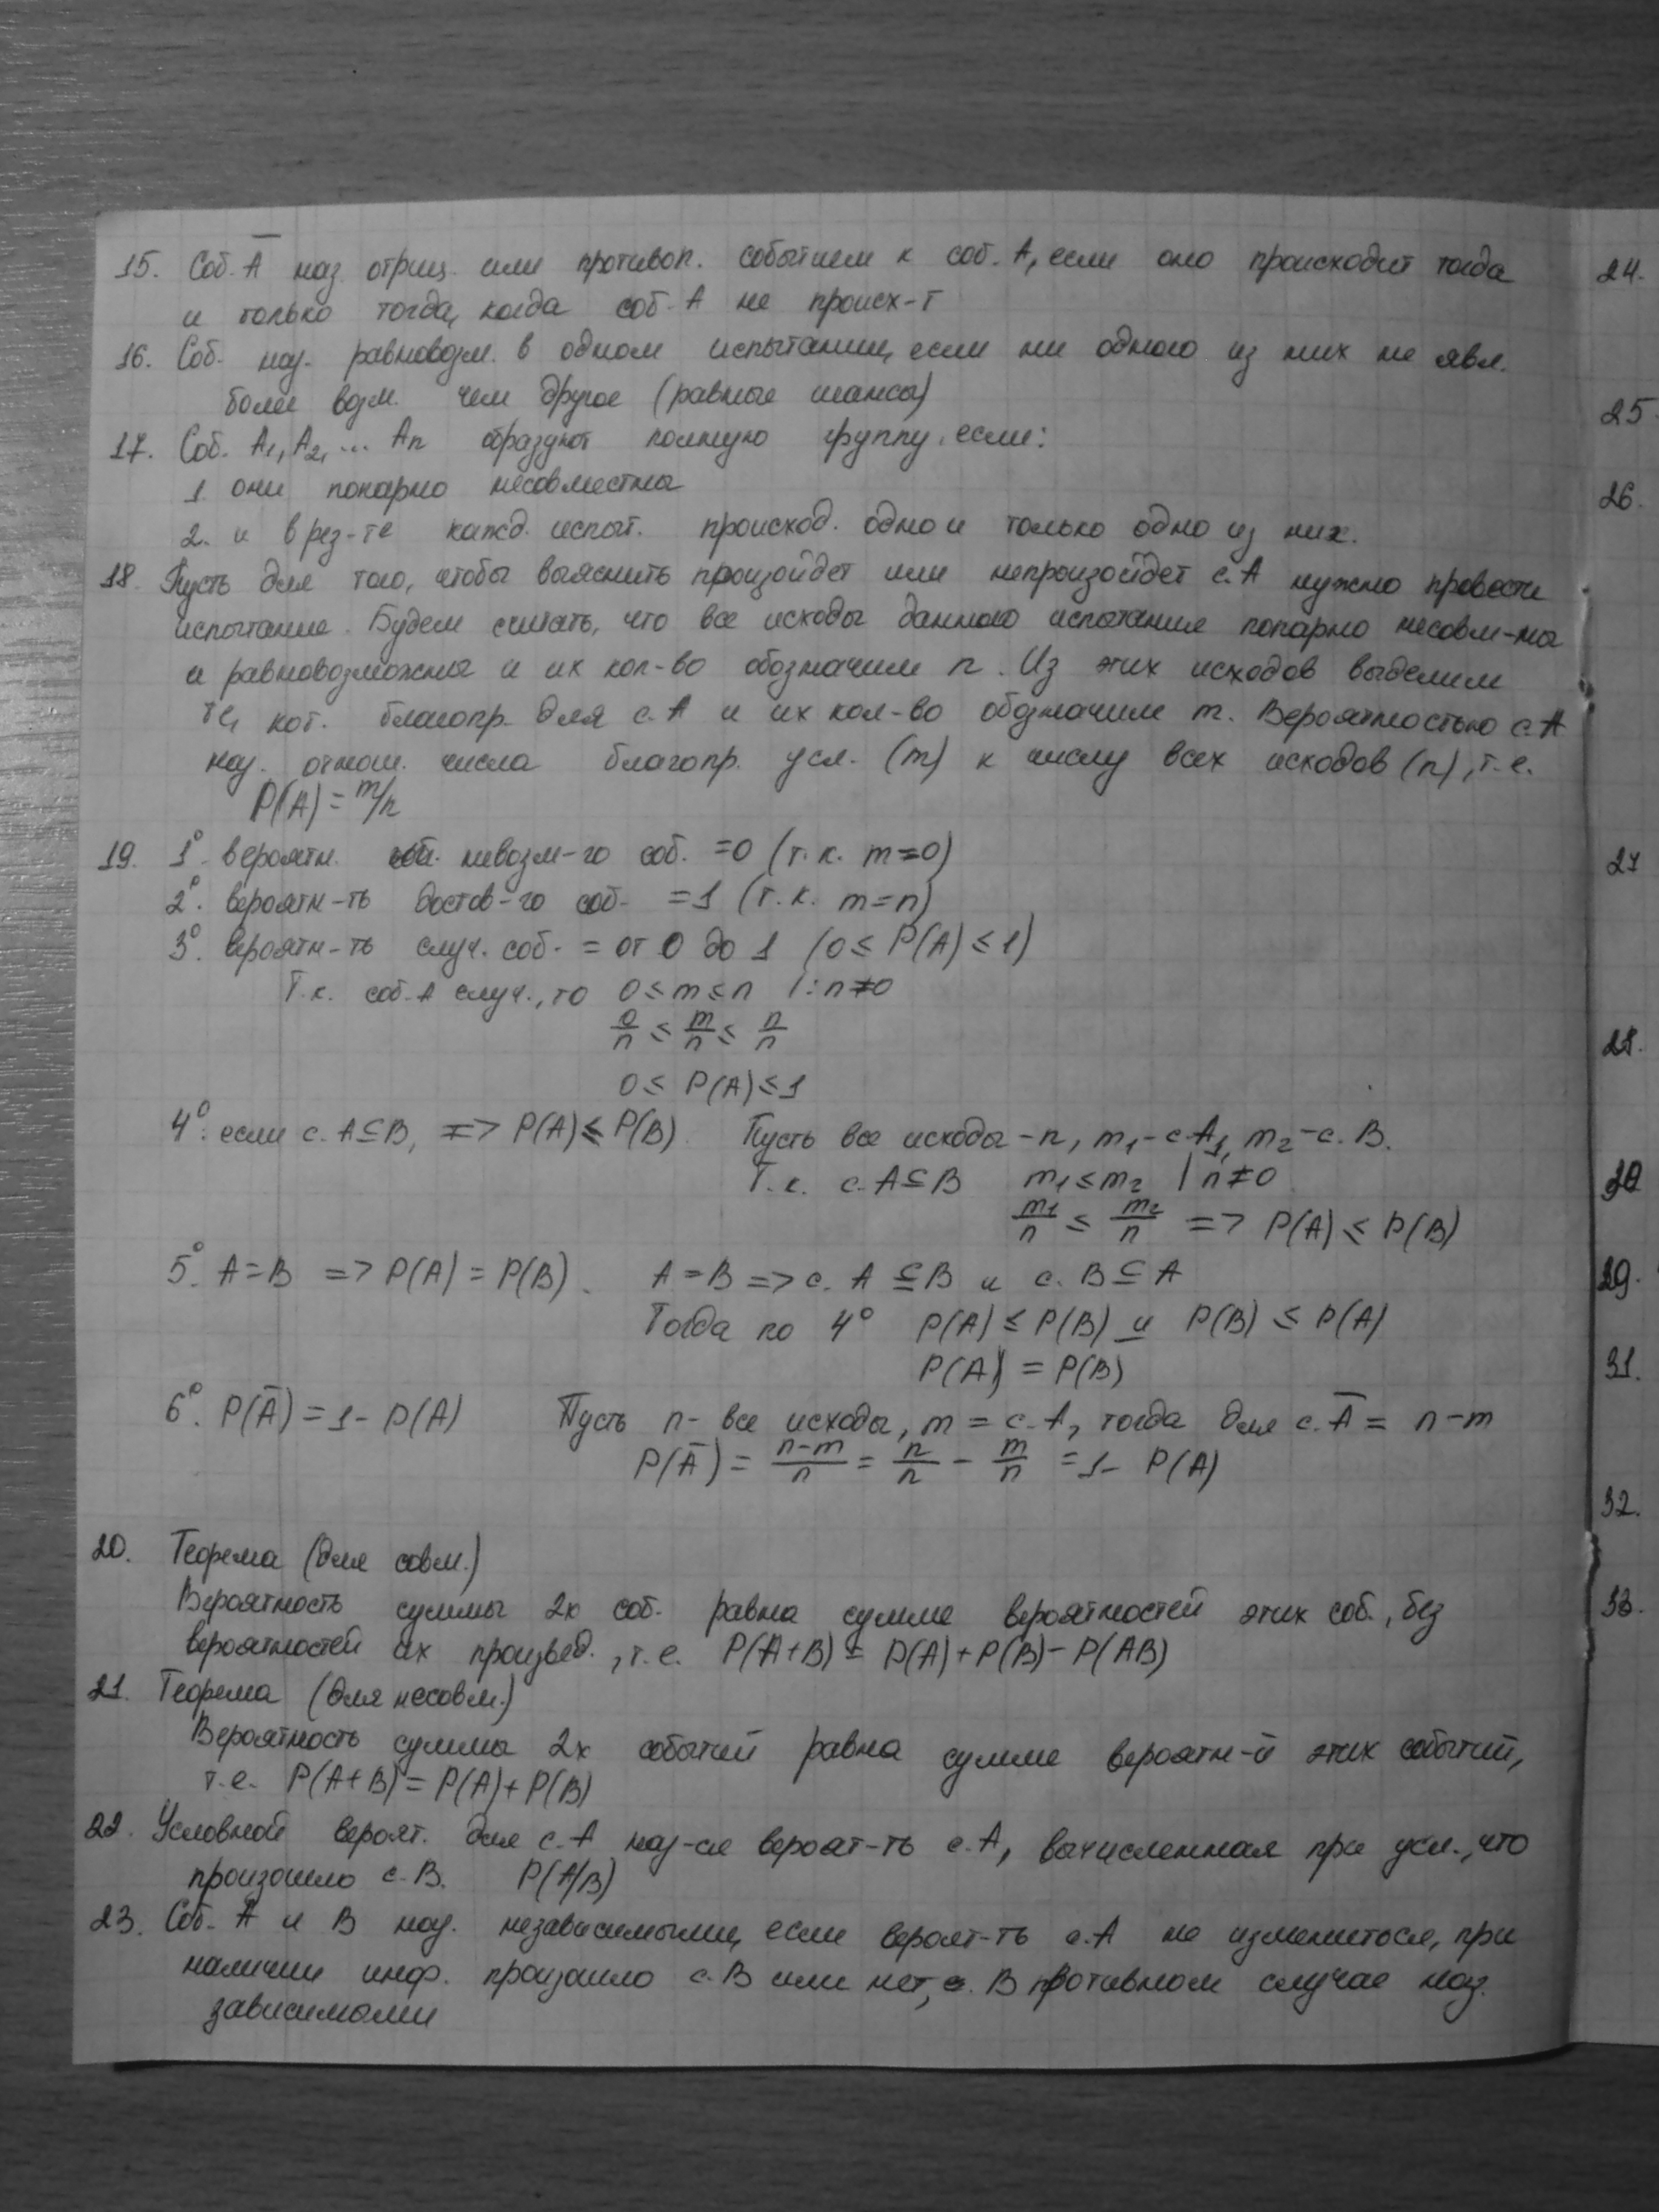 15. Соб. A̅ наз. отриц. или противоп. событием к соб. А, если оно происходит тогда
и только тогда, когда соб. А не происх-т
16. Соб. наз. равновозм. в одном испытании, если ни одного из них не явл.
более возм. чем другое (равные шансы)
17. Соб. A₁, A₂, ... An образуют полную группу, если:
1 они попарно несовместны
2. и в рез-те кажд. испыт. происход. одно и только одно из них.
18. Пусть для того, чтобы выяснить произойдет или непроизойдет с. А нужно провести
испытание. Будем считать, что все исходы данного испытания попарно несовм-ны
и равновозможны и их кол-во обозначим n. Из этих исходов выделим
те, кот. благопр. для с. А и их кол-во обозначим m. Вероятностью с. А
наз. отнош. числа благопр. усл. (m) к числу всех исходов (n), т.е.
P(A) = m/n
19. 1°. вероятн. невозм-го соб. =0 (т.к. m=0)
2°. вероятн-ть достов-го соб. =1 (т.к. m=n)
3°. вероятн-ть случ. соб. = от 0 до 1 (0 ≤ P(A) ≤ 1)
Т.к. соб. А случ., то 0 ≤ m ≤ n |: n≠0
0/n ≤ m/n ≤ n/n
0 ≤ P(A) ≤ 1
4°. если с. A⊆B, => P(A) ≤ P(B). Пусть все исходы - n, m₁ - с. A₁, m₂ - с. B.
Т.к. с. A⊆B m₁ ≤ m₂ | n≠0
m₁/n ≤ m₂/n => P(A) ≤ P(B)
5°. A=B => P(A) = P(B). A=B => с. A ⊆ B и с. B ⊆ A
Тогда по 4° P(A) ≤ P(B) и P(B) ≤ P(A)
P(A) = P(B)
6°. P(A̅) = 1 - P(A) Пусть n - все исходы, m = с. А, тогда для с. A̅ = n-m
P(A̅) = n-m/n = n/n - m/n = 1 - P(A)
20. Теорема (для совм.)
Вероятность суммы 2х соб. равна сумме вероятностей этих соб., без
вероятностей их произвед., т.е. P(A+B) = P(A)+P(B)-P(AB)
21. Теорема (для несовм.)
Вероятность суммы 2х событий равна сумме вероятн-й этих событий,
т.е. P(A+B) = P(A)+P(B)
22. Условной вероят. для с. А наз-ся вероят-ть с. А, вычисленная при усл., что
произошло с. В. P(A/B)
23. Соб. А и В наз. независимыми, если вероят-ть с. А не изменится, при
наличии инф. произошло с. В или нет, В противном случае наз.
зависимыми
24.
25
26.
27
28.
30
29.
31.
32.
33.